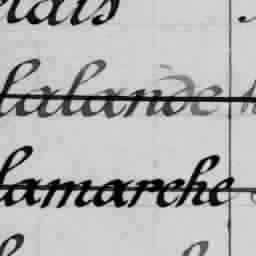 lalande
lamarche